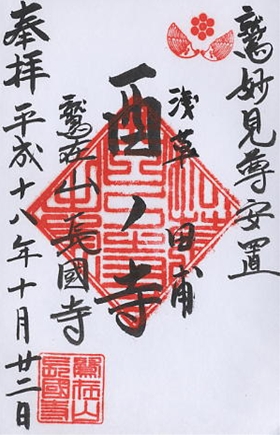 鷲妙見尊安置
浅草田甫
酉ノ寺
鷲在山長國寺
奉拝平成十八年十月廿二日
鷲在山
長國寺